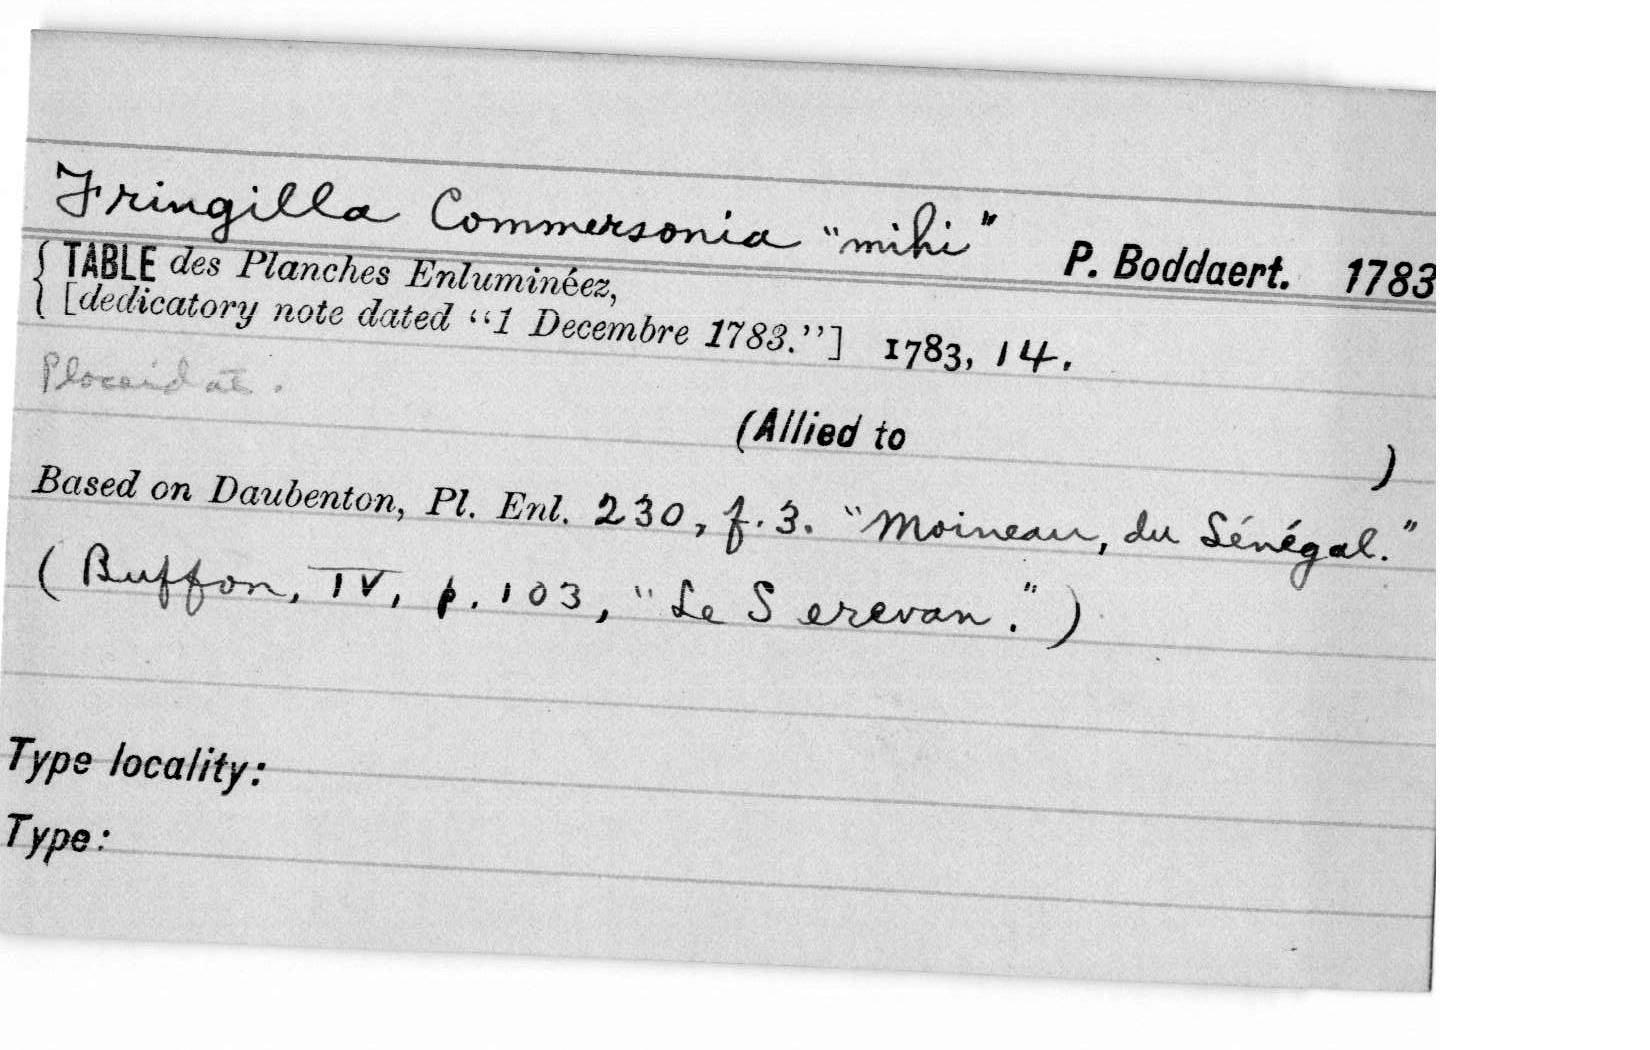 Fringilla Commersonia "mihi" P. Boddaert. 1783
{ TABLE des Planches Enluminéez,
[dedicatory note dated "1 Decembre 1783."] 1783, 14.
Ploceidae.
(Allied to )
Based on Daubenton, Pl. Enl. 230, f.3. "Moineau, du Sénégal."
(Buffon, IV, p. 103, "Le Serevan.")
Type locality:
Type: